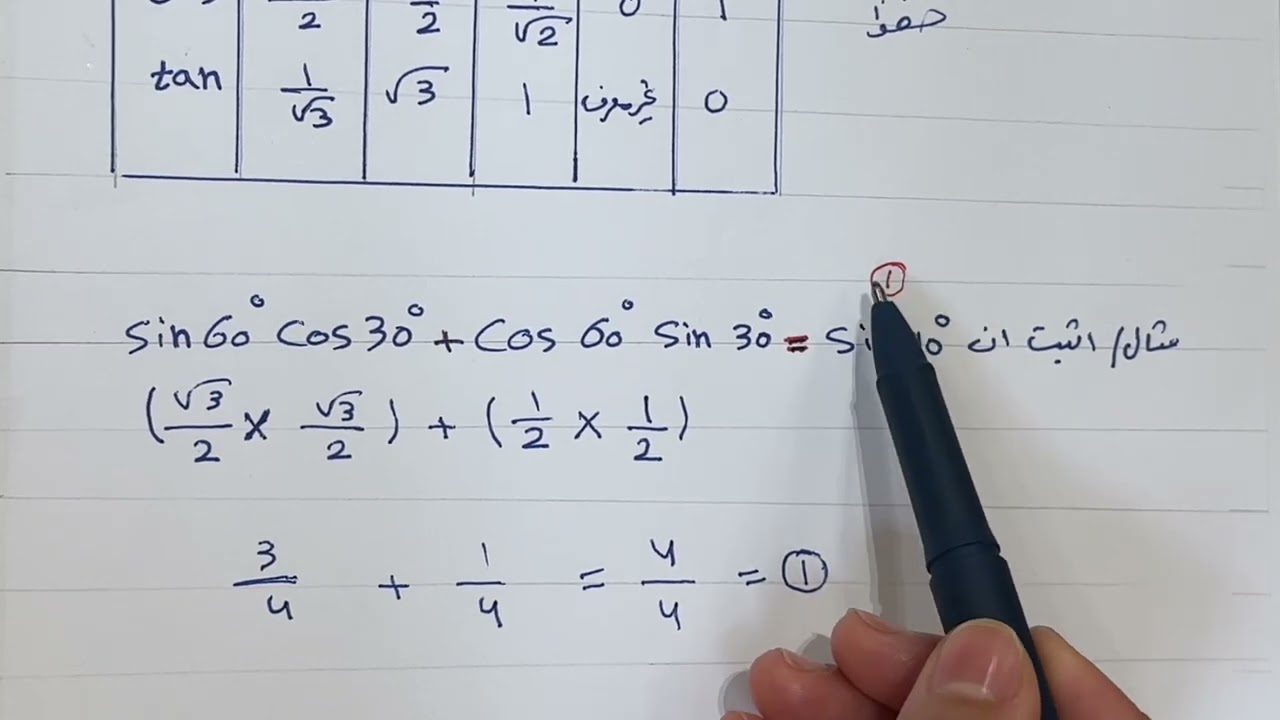 2 2 1/√2 0 1
tan 1/√3 √3 1 غيرمعرف 0
①
مثال/ اثبت ان sin 60° cos 30° + cos 60° sin 30° =
(√3/2 × √3/2) + (1/2 × 1/2)
3/4 + 1/4 = 4/4 = ①